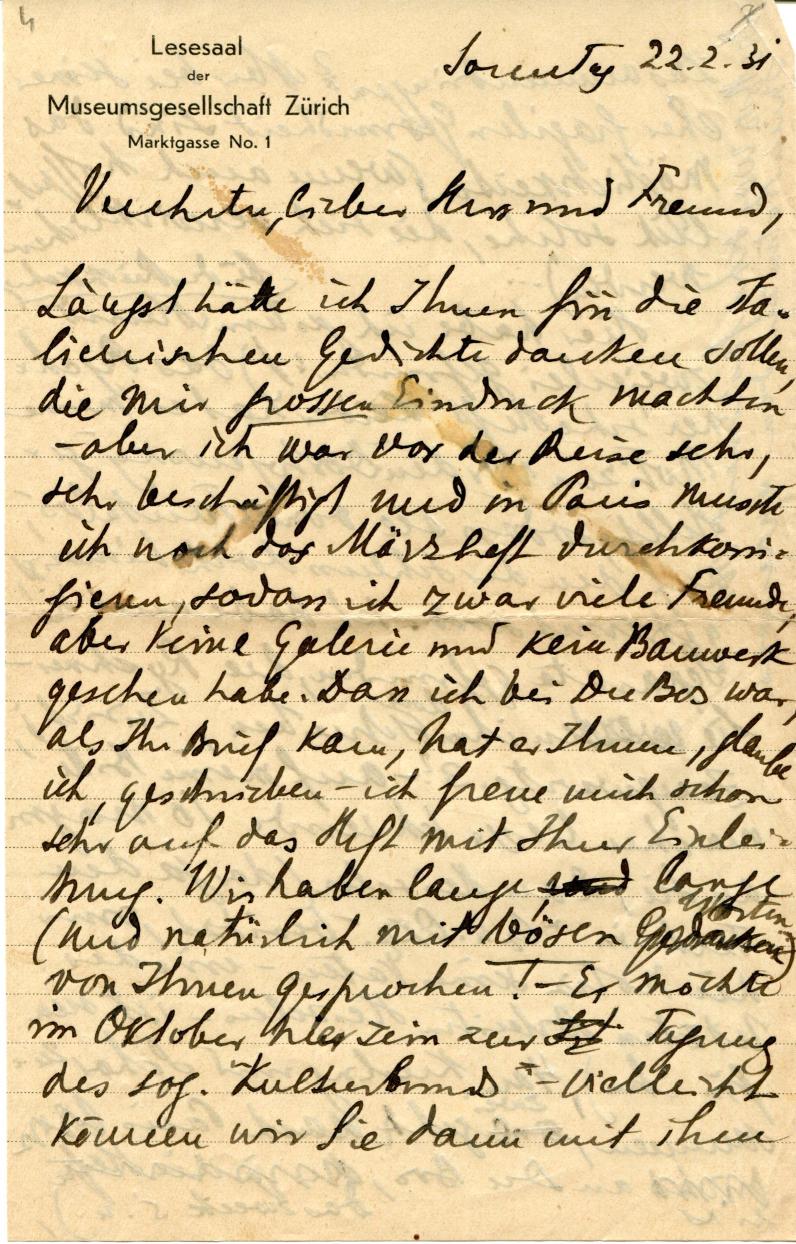 4
Lesesaal
der
Museumsgesellschaft Zürich
Marktgasse No. 1
Sonntag 22.2.31
Verehrter, lieber Herr und Freund,
Längst hätte ich Ihnen für die ita-
lienischen Gedichte danken sollen,
die mir grossen Eindruck machten
– aber ich war vor der Reise sehr,
sehr beschäftigt und in Paris musste
ich noch das Märzheft durchkorri-
gieren, sodass ich zwar viele Freunde,
aber keine Galerie und kein Bauwerk
gesehen habe. Dass ich bei Du Bos war,
als Ihr Brief kam, hat er Ihnen, glaube
ich, geschrieben – ich freue mich schon
sehr auf das Heft mit Ihrer Einlei-
tung. Wir haben lange, und lange
(und natürlich mit bösen Gedanken Worten)
von Ihnen gesprochen! – Er möchte
im Oktober hier sein zur Tagung
des sog. "Kulturbunds" – vielleicht
können wir Sie dann mit ihm